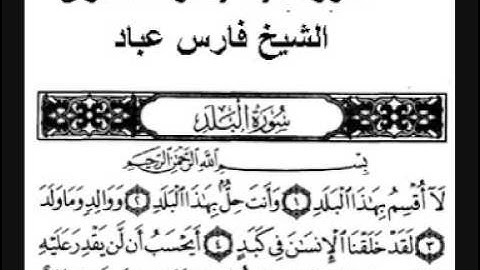 الشيخ فارس عباد
سُورَةُ الْبَلَدِ
بِسْمِ اللَّهِ الرَّحْمَٰنِ الرَّحِيمِ
لَآ أُقْسِمُ بِهَٰذَا ٱلْبَلَدِ ١ وَأَنتَ حِلٌّۢ بِهَٰذَا ٱلْبَلَدِ ٢ وَوَالِدٍ وَمَا وَلَدَ
٣ لَقَدْ خَلَقْنَا ٱلْإِنسَٰنَ فِى كَبَدٍ ٤ أَيَحْسَبُ أَن لَّن يَقْدِرَ عَلَيْهِ